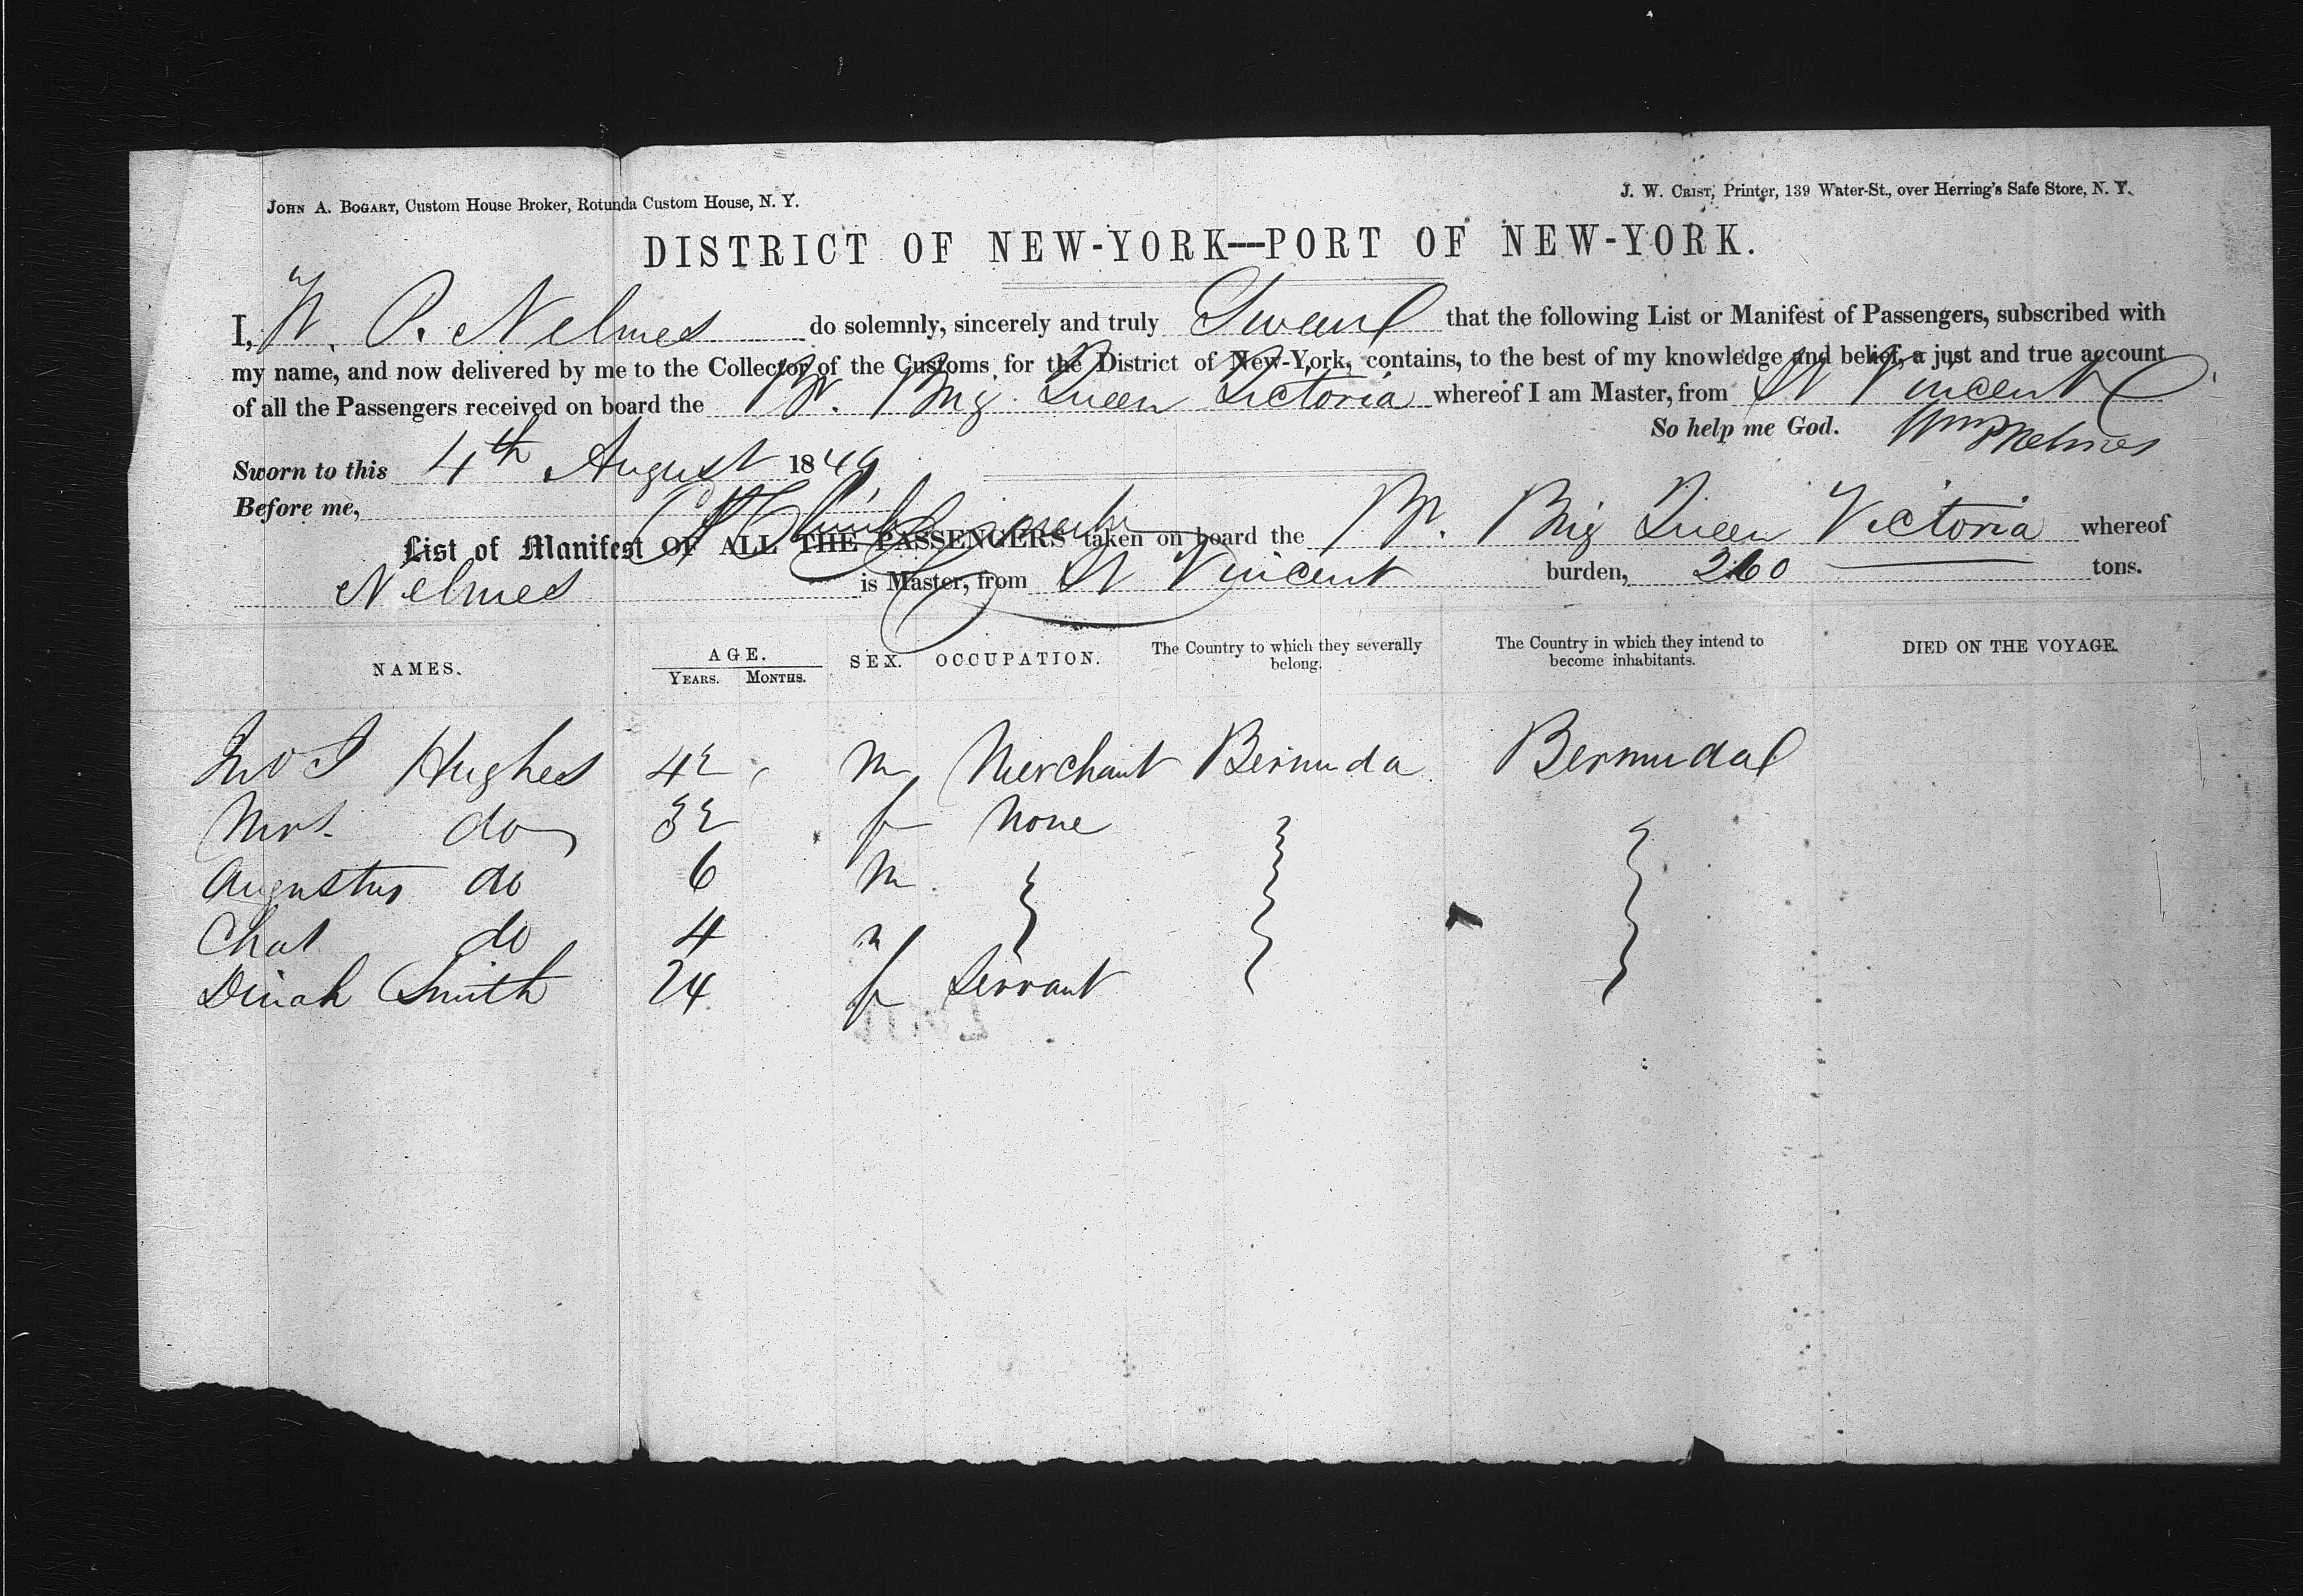 JOHN A. BOGART, Custom House Broker, Rotunda Custom House, N. Y.
J. W. CRIST, Printer, 139 Water-St., over Herring's Safe Store, N. Y.
DISTRICT OF NEW-YORK—PORT OF NEW-YORK.
I, W. P. Nelmes do solemnly, sincerely and truly Swear that the following List or Manifest of Passengers, subscribed with
my name, and now delivered by me to the Collector of the Customs for the District of New-York, contains, to the best of my knowledge and belief, a just and true account
of all the Passengers received on board the Br. Brig. Queen Victoria whereof I am Master, from St Vincent
So help me God. Wm P Nelmes
Sworn to this 4th August 1849
Before me,
List of Manifest OF ALL THE PASSENGERS taken on board the Br. Brig Queen Victoria whereof
Nelmes is Master, from St Vincent burden, 260 tons.
NAMES. AGE. YEARS. MONTHS. SEX. OCCUPATION. The Country to which they severally belong. The Country in which they intend to become inhabitants. DIED ON THE VOYAGE.
Jno S Hughes 42 m Merchant Bermuda Bermuda
Mrs. do 32 f None
Augustus do 6 m
Chas do 4 m
Dinah Smith 24 f Servant